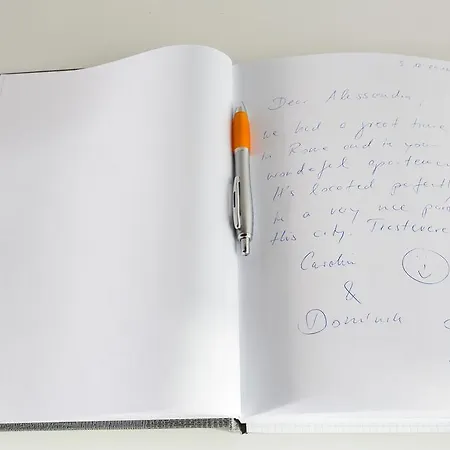 Dear Alessandra,
we had a great time
in Rome and in your
wonderful apartement
It's located perfectl
in a very nice
this city. Trastevere
Carolin
&
Dominik